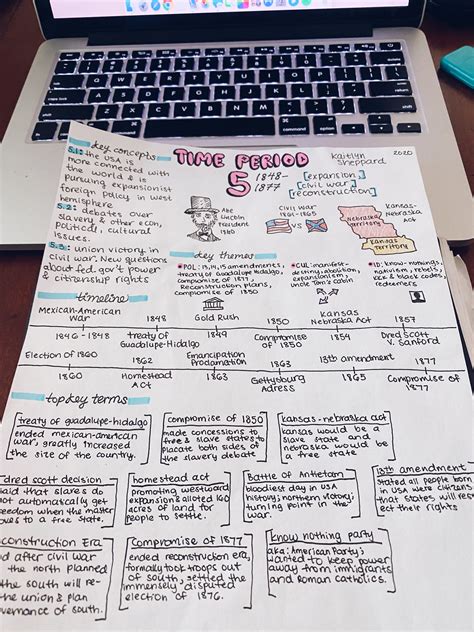 key concepts
5.1: the USA is
more connected with
the world & is
pursuing expansionist
foreign policy in west
hemisphere.
5.2: debates over
slavery & other econ,
political, cultural
issues.
5.3: union victory in
civil war. New questions
about fed. gov't power
& citizenship rights
TIME PERIOD
5
1848-
1877
[expansion]
[civil war]
[reconstruction]
Kaitlyn
Sheppard
2020
Abe
Lincoln
President
1860
Civil War
1861-1865
VS
Kansas-
Nebraska Act
Nebraska
Territory
Kansas
Territory
key themes
POL: 13,14,15 amendments,
treaty of Guadalupe Hidalgo,
compromise of 1877,
Reconstruction plans,
compromise of 1850
CUL: manifest-
destiny, abolition,
expansionism,
uncle Tom's Cabin
ID: know-nothings,
nativism, rebels,
KKK & black codes,
redeemers
timeline
Mexican-American
War
1846-1848
1848
treaty of
Guadalupe-Hidalgo
Gold Rush
1849
1850
Compromise
of 1850
Kansas
Nebraska Act
1854
1857
Dred Scott
V. Sanford
Election of 1860
1860
1862
Homestead
Act
Emancipation
Proclamation
1863
1863
Gettysburg
Adress
13th amendment
1865
1877
Compromise
of 1877
top key terms
treaty of guadalupe-hidalgo
ended mexican-american
war, greatly increased
the size of the country.
compromise of 1850
made concessions to
free & slave states to
placate both sides of
the slavery debate
kansas-nebraska act
kansas would be a
slave state and
nebraska would be
a free state
dred scott decision
said that slaves do
not automatically get
freedom when the master
moves to a free state.
homestead act
promoting westward
expansion & alloted 160
acres of land for
people to settle.
Battle of Antietam
bloodiest day in USA
history; northern victory;
turning point in the
war.
amendment
stated all people born
in USA were citizens
that states will
respect their rights
construction Era
after civil war
the north planned
the south will re-
the union & plan
governance of south.
Compromise of 1877
ended reconstruction era,
formally took troops out
of south, settled the
immensely disputed
election of 1876.
know nothing party
aka: American Party;
wanted to keep power
away from immigrants
and roman catholics.